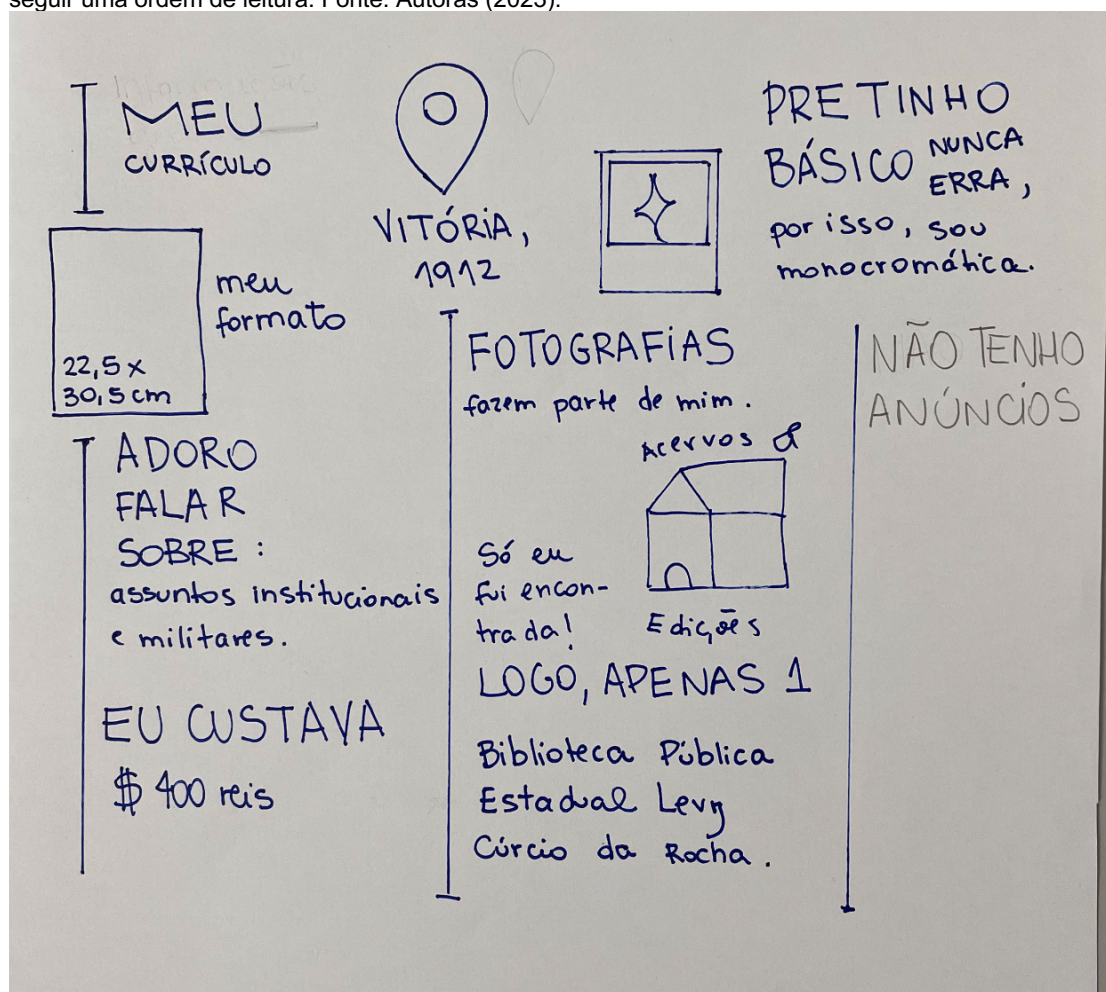 seguir uma ordem de leitura. Fonte: Autoras (2023).
MEU
CURRÍCULO
VITÓRIA,
1912
PRETINHO
BÁSICO NUNCA
ERRA,
por isso, sou
monocromática.
meu
formato
22,5 x
30,5 cm
ADORO
FALAR
SOBRE:
assuntos institucionais
e militares.
EU CUSTAVA
$ 400 reis
FOTOGRAFIAS
fazem parte de mim.
Acervos &
Edições
Só eu
fui encon-
trada!
LOGO, APENAS 1
Biblioteca Pública
Estadual Levy
Cúrcio da Rocha.
NÃO TENHO
ANÚNCIOS